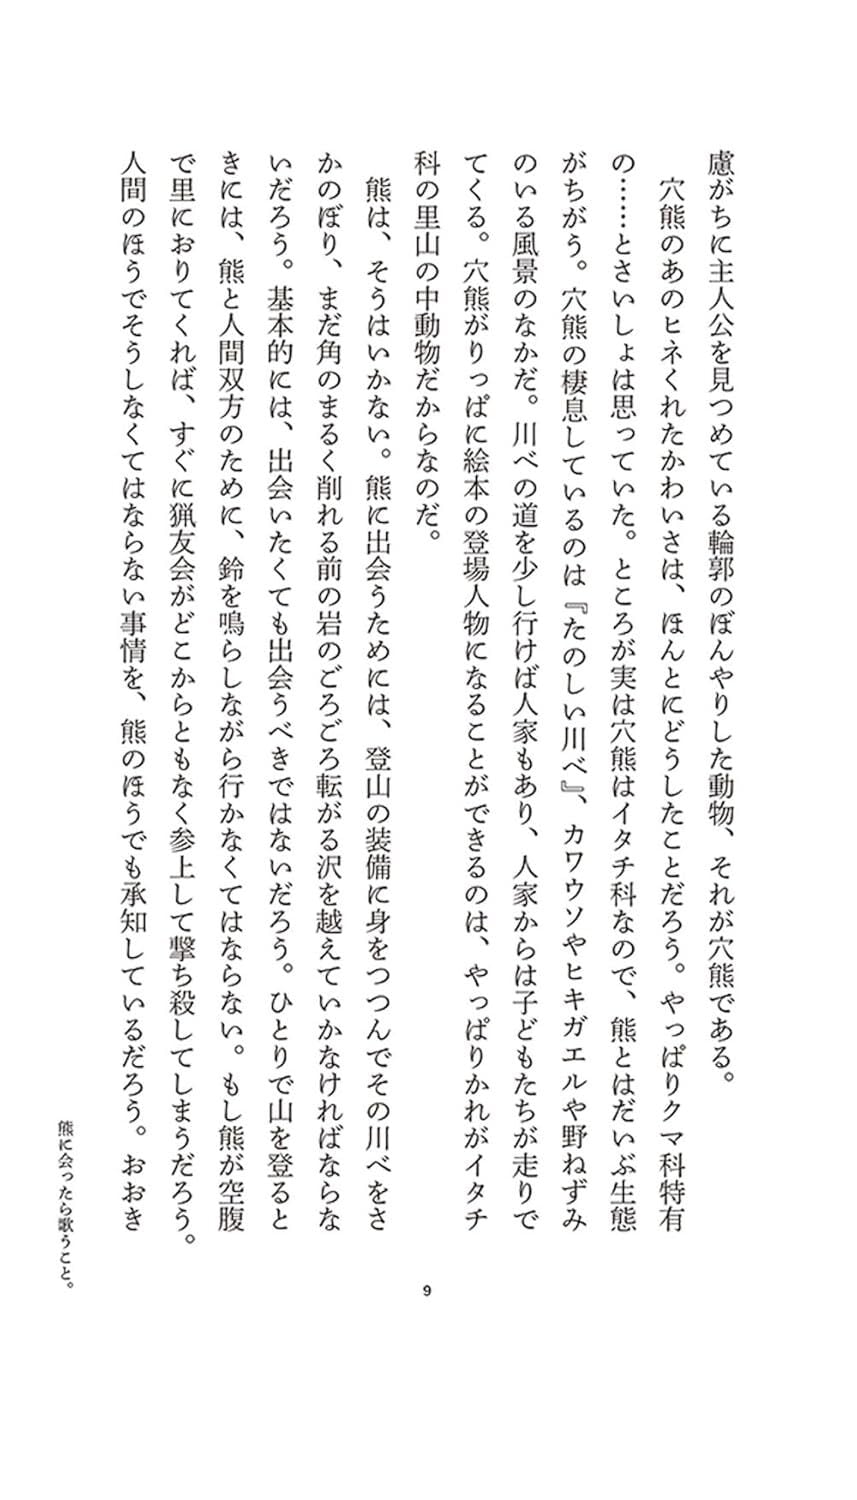 慮がちに主人公を見つめている輪郭のぼんやりした動物、それが穴熊である。
穴熊のあのヒネくれたかわいさは、ほんとにどうしたことだろう。やっぱりクマ科特有
の……とさいしょは思っていた。ところが実は穴熊はイタチ科なので、熊とはだいぶ生態
がちがう。穴熊の棲息しているのは『たのしい川べ』、カワウソやヒキガエルや野ねずみ
のいる風景のなかだ。川べの道を少し行けば人家もあり、人家からは子どもたちが走りで
てくる。穴熊がりっぱに絵本の登場人物になることができるのは、やっぱりかれがイタチ
科の里山の中動物だからなのだ。
熊は、そうはいかない。熊に出会うためには、登山の装備に身をつつんでその川べをさ
かのぼり、まだ角のまるく削れる前の岩のごろごろ転がる沢を越えていかなければならな
いだろう。基本的には、出会いたくても出会うべきではないだろう。ひとりで山を登ると
きには、熊と人間双方のために、鈴を鳴らしながら行かなくてはならない。もし熊が空腹
で里におりてくれば、すぐに猟友会がどこからともなく参上して撃ち殺してしまうだろう。
人間のほうでそうしなくてはならない事情を、熊のほうでも承知しているだろう。おおき
熊に会ったら歌うこと。
9